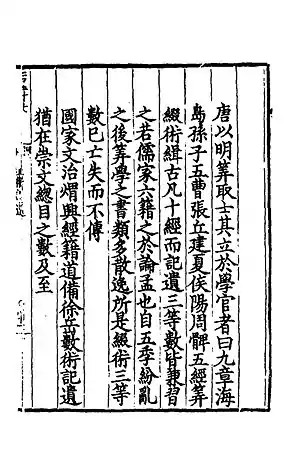 唐以明算取士其立於學官者曰九章海
島孫子五曹張丘建夏侯陽周髀五經筭
綴術緝古凡十經而記遺三等數皆兼習
之若儒家六籍之於論孟也自五季紛亂
之後筭學之書類多散逸所是綴術三等
數已亡失而不傳
國家文治熠興經籍道備徐岳數術記遺
猶在崇文總目之數及至